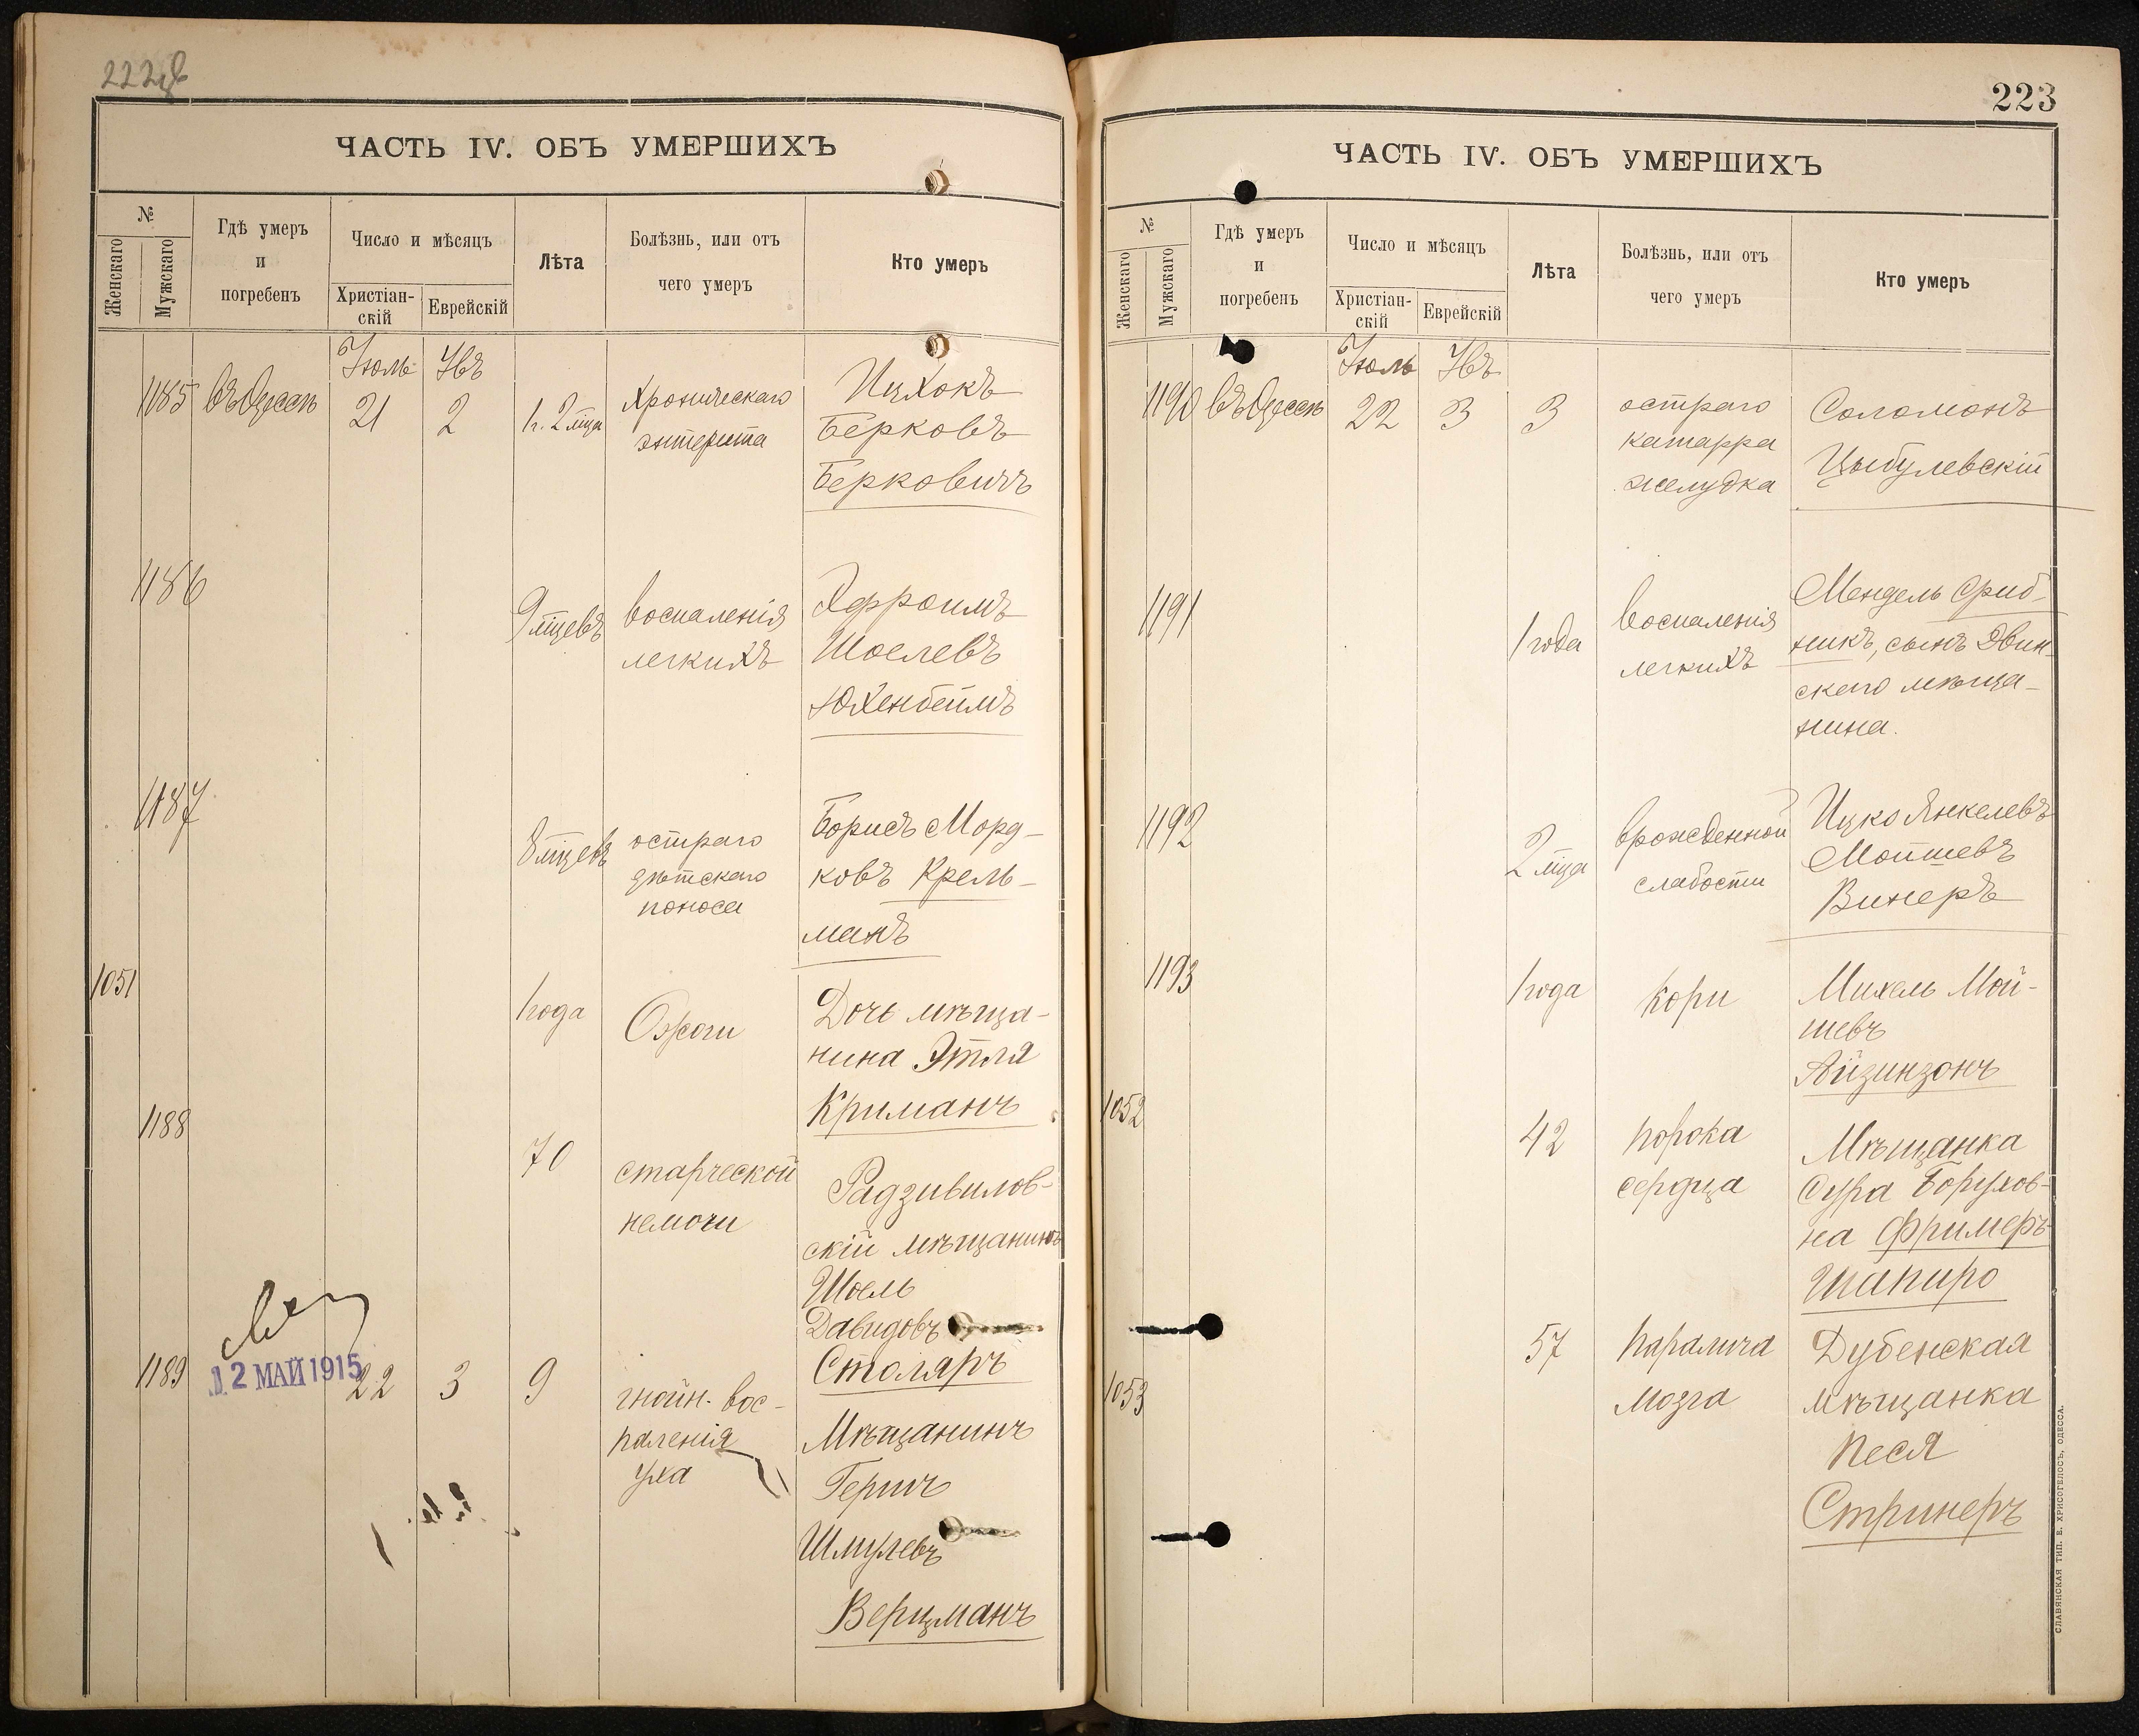 ЧАСТЬ IV. ОБЪ УМЕРШИХЪ
№
Женскаго
Мужскаго
Гдѣ умеръ
и
погребенъ
Число и мѣсяцъ
Христіан-
скій
Еврейскій
Лѣта
Болѣзнь, или отъ
чего умеръ
Кто умеръ
Іюль
1185 въ Одессѣ 21 2 1 г. 2 мца
Хроническаго
энтерита
Ицхокъ
Берковъ
Берковичъ
1186
9 мцевъ
воспаленія
легкихъ
Эфроимъ
Шоелевъ
Юхенбеймъ
1187
8 мцевъ
остраго
дѣтскаго
поноса
Борисъ Морд-
ковъ Крель-
манъ
1051
1 года
Ожоги
Дочь мѣща-
нина Этля
Криманъ
1188
70
старческой
немочи
Радзивилов-
скій мѣщанинъ
Шоель
Давидовъ
Столяръ
12 МАЙ 1915
1189 22 3 9
гнойн. вос-
паленія
уха
Мѣщанинъ
Гершъ
Шмулевъ
Верцманъ
223
ЧАСТЬ IV. ОБЪ УМЕРШИХЪ
№
Женскаго
Мужскаго
Гдѣ умеръ
и
погребенъ
Число и мѣсяцъ
Христіан-
скій
Еврейскій
Лѣта
Болѣзнь, или отъ
чего умеръ
Кто умеръ
Іюль
1190 въ Одессѣ 22 3 3
остраго
катарра
желудка
Соломонъ
Цыбулевскій
1191
1 года
воспаленія
легкихъ
Мендель Сриб-
никъ, сынъ Двин-
скаго мѣща-
нина.
1192
2 мца
врожденной
слабости
Ицко Янкелевъ
Мошшевъ
Винеръ
1193
1 года
Кори
Михель Мой-
шевъ
Айзинзонъ
1052
42
порока
сердца
Мѣщанка
Сура Борухов-
на Фримеръ-
Шапиро
1053
57
паралича
мозга
Дубенская
мѣщанка
Песя
Стринеръ
СЛАВЯНСКАЯ ТИП. Е. ХРИСОГЕЛОСЪ, ОДЕССА.